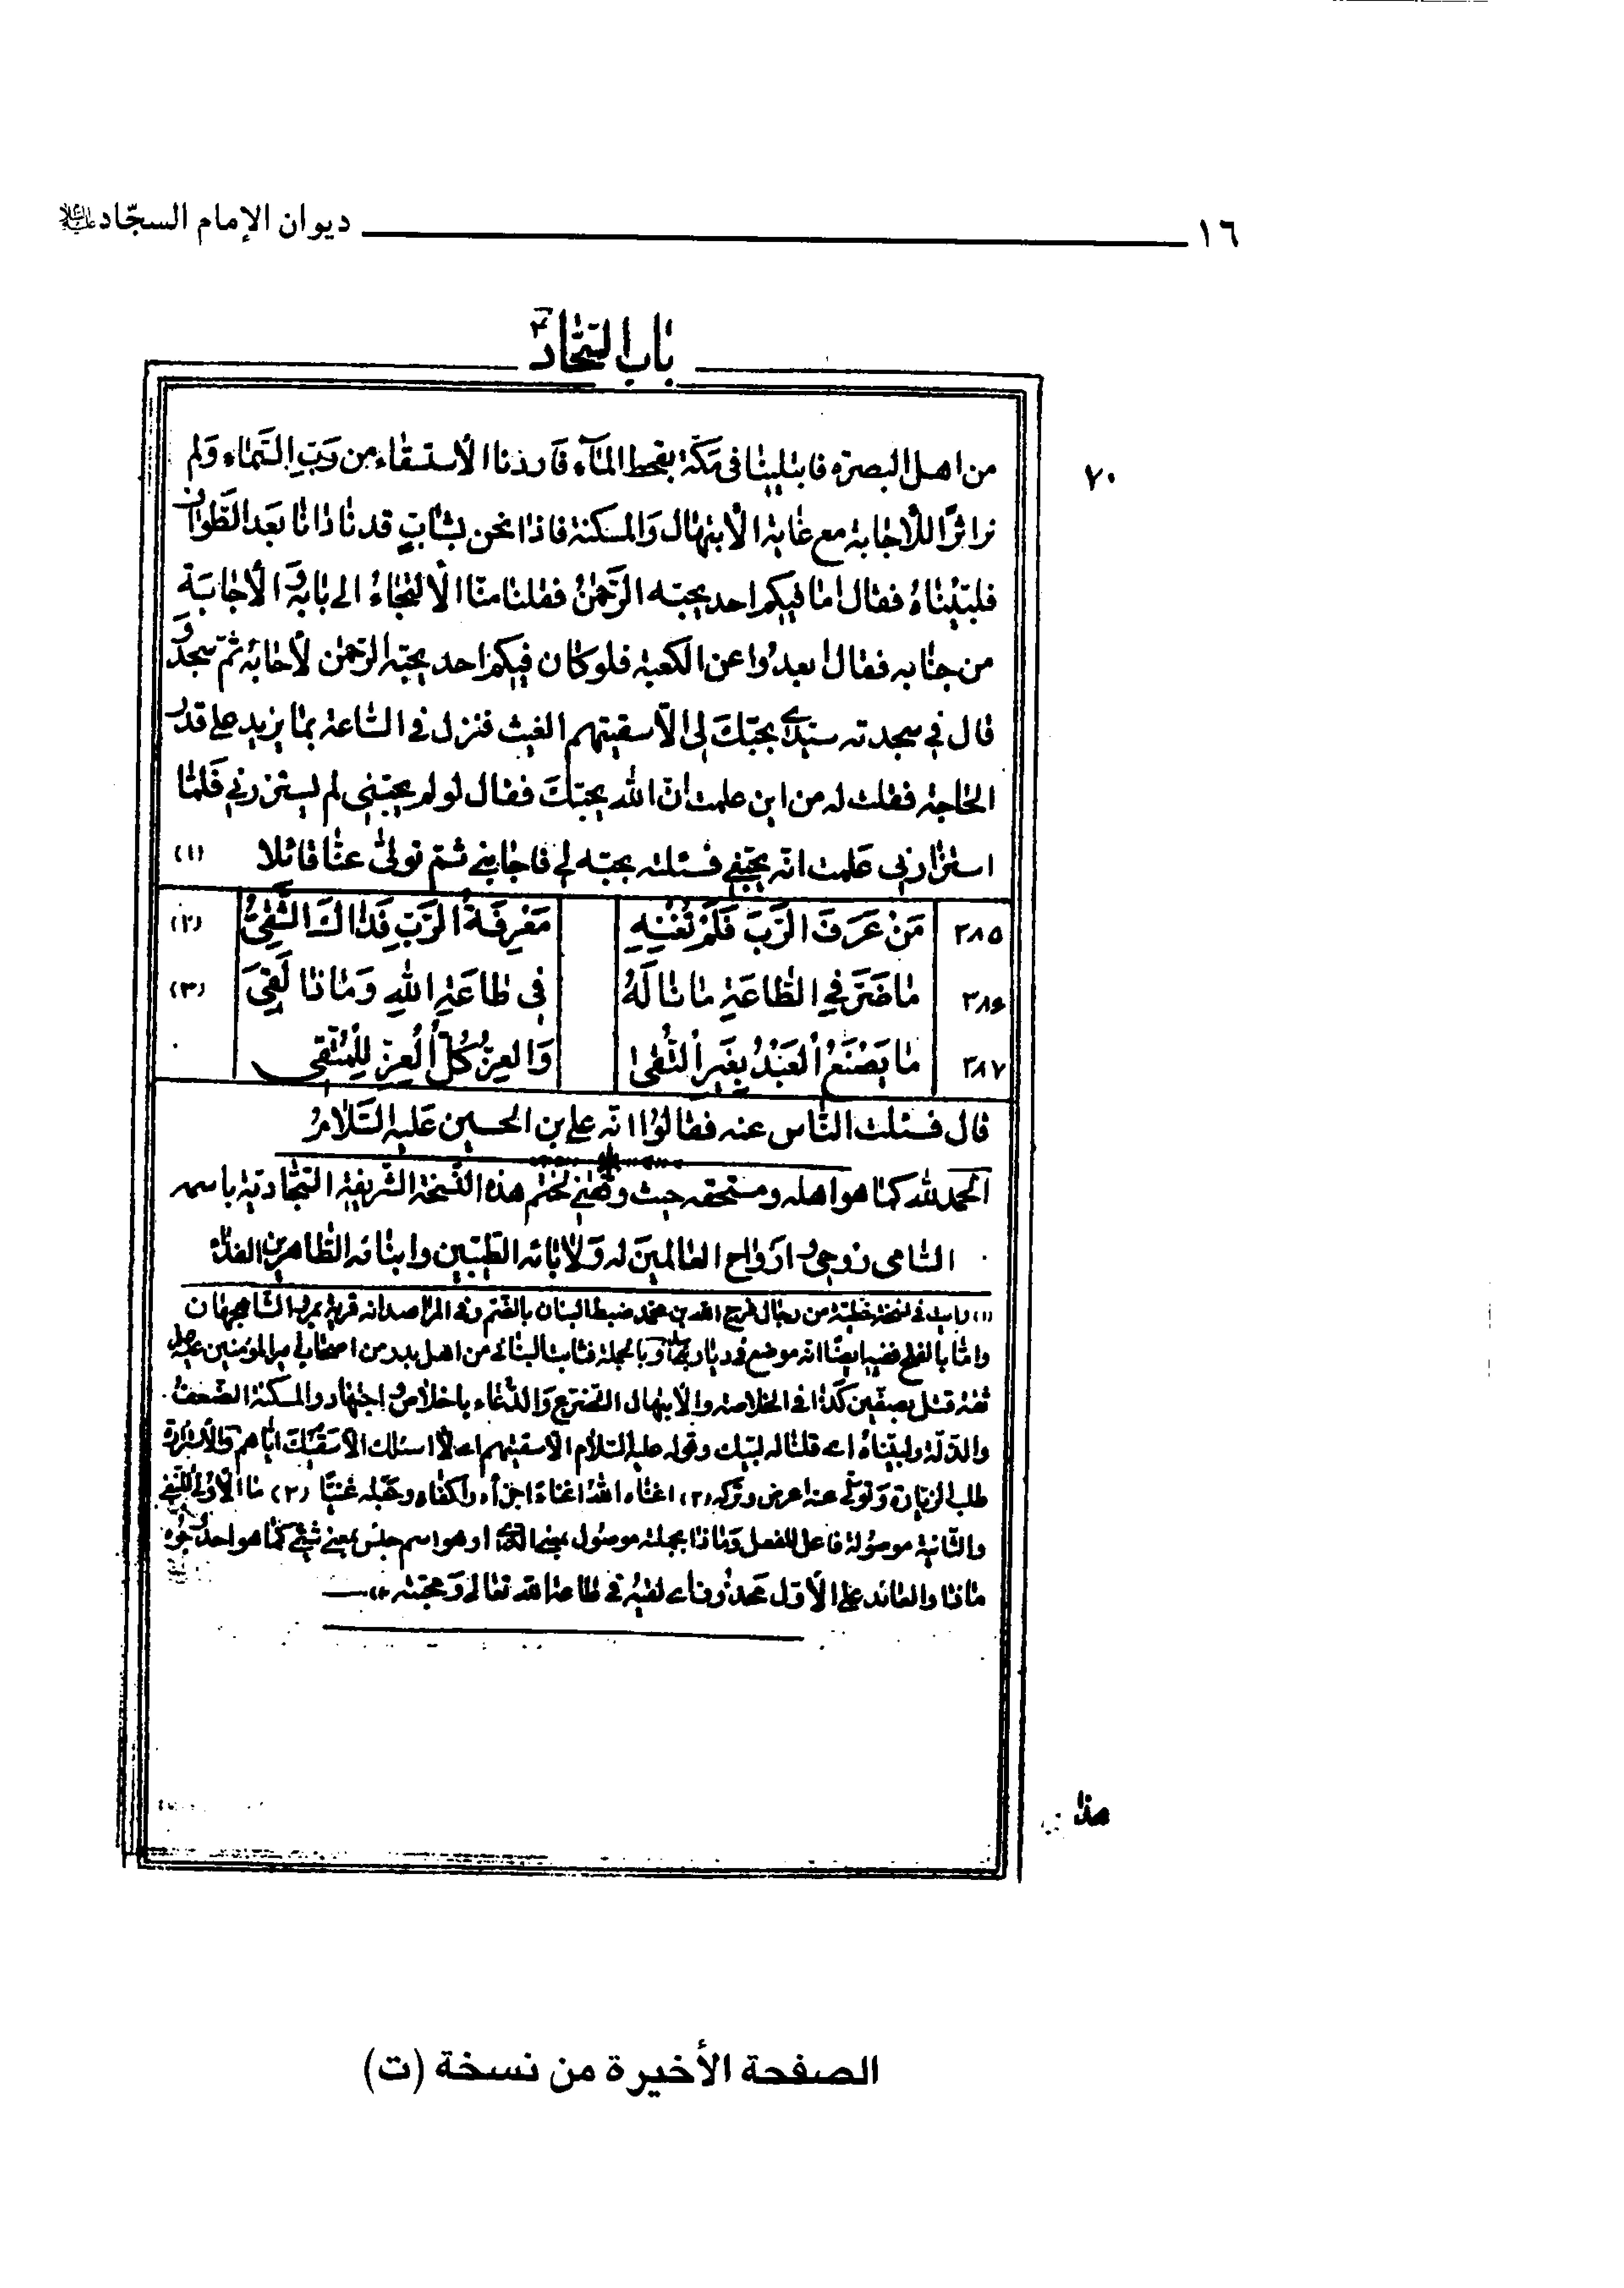 ١٦ ديوان الإمام السجّاد عليه السلام
باب السّجّاد
٧٠
من اهل البصره فابتلينا فى مكّة بقحط المآء فاردنا الأستسقاء من ربّ السّماء ولم
نر اثرًا للأجابة مع غاية الأبتهال والمسكنة فاذا نحن بشابّ قد نادانا بعد الطّواف
فلبّيناه فقال اما فيكم احد يحبّه الرّحمٰن فقلنا منّا الألتجاء الى بابه و الأجابة
من جنابه فقال ابعدوا عن الكعبة فلو كان فيكم احد يحبّه الرّحمٰن لأجابه ثمّ سجد و
قال فى سجدته سيّدى بحبّك لى الّا سقيتهم الغيث فنزل فى السّاعة بما يزيد على قدر
الحاجة فقلت له من اين علمت انّ الله يحبّك فقال لو لم يحبّنى لم يستزرنى فلمّا
استزارنى علمت انّه يحبّنى فسئلته بحبّه لى فاجابنى ثمّ تولّى عنّا قائلا (١)
٣٨٥ مَنْ عَرَفَ الرَّبَّ فَلَمْ تُغْنِهِ مَعْرِفَةُ الرَّبِّ فَذَاكَ الشَّقِىُّ (٢)
٣٨٦ مَا ضَرَّ فِى الطَّاعَةِ مَا نَالَهُ فِى طَاعَةِ اللهِ وَمَا ذَا لَقِىَ (٣)
٣٨٧ مَا يَصْنَعُ الْعَبْدُ بِغَيْرِ التُّقىٰ وَالعِزُّ كُلُّ الْعِزِّ لِلْمُتَّقِى
قال فسئلت النّاس عنه فقالوا انّه على بن الحسين عليه السّلام
الحمد لله كما هو اهله ومستحقه حيث وفّقنى لختم هذه النّسخة الشّريفة السّجّاديّة باسمه
السّامى روحى و ارواح العالمين له ولأبائه الطّيّبين وابنائه الطّاهرين الفداء
(١) رايت فى نسخة خطّيّة من رجال فرج الله بن محمد ضبط البنان بالضّم وفى المراصد انه قرية بمرو الشاهجهان
وامّا بالفتح ففيه ايضًا انه موضع فى ديار وبالجملة فثابت البنانى من اهل بدر من اصحاب امير المؤمنين عليه
ثقة قتل بصفّين كذا فى الخلاصة والأبتهال التضرّع والدّعاء باخلاص و اجتهاد والمسكنة الضّعف
والذلّة ولبّيناه اى قلنا له لبّيك وقوله عليه السّلام الّا سقيتهم اى لا اسئلك الّا سقيك ايّاهم والأستزارة
طلب الزيارة وتولّى عنه اعرض وتركه (٢) اغناه الله اغناءً اجزأه واكفاه وجعله غنيًّا (٣) ما الأولى للنّفى
والثّانية موصولة فاعل للفعل وماذا بجملته موصول بمعنى الّذى او هو اسم جنس بمعنى شىء كما هو احد وجوه
ماذا والعائد على الأوّل محذوف اى لقيه فى طاعة الله تعالى ومحبّته
هذا
الصفحة الأخيرة من نسخة (ت)